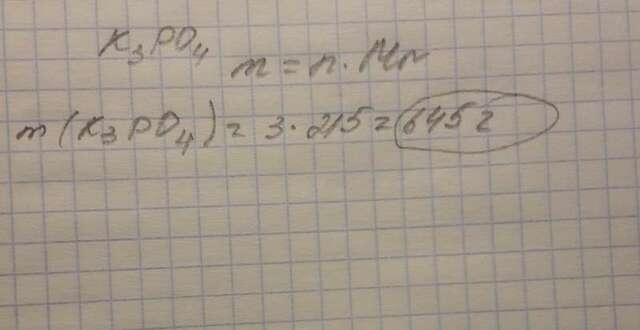 K₃PO₄ m = n · Mr
m (K₃PO₄) = 3 · 215 = 645 г